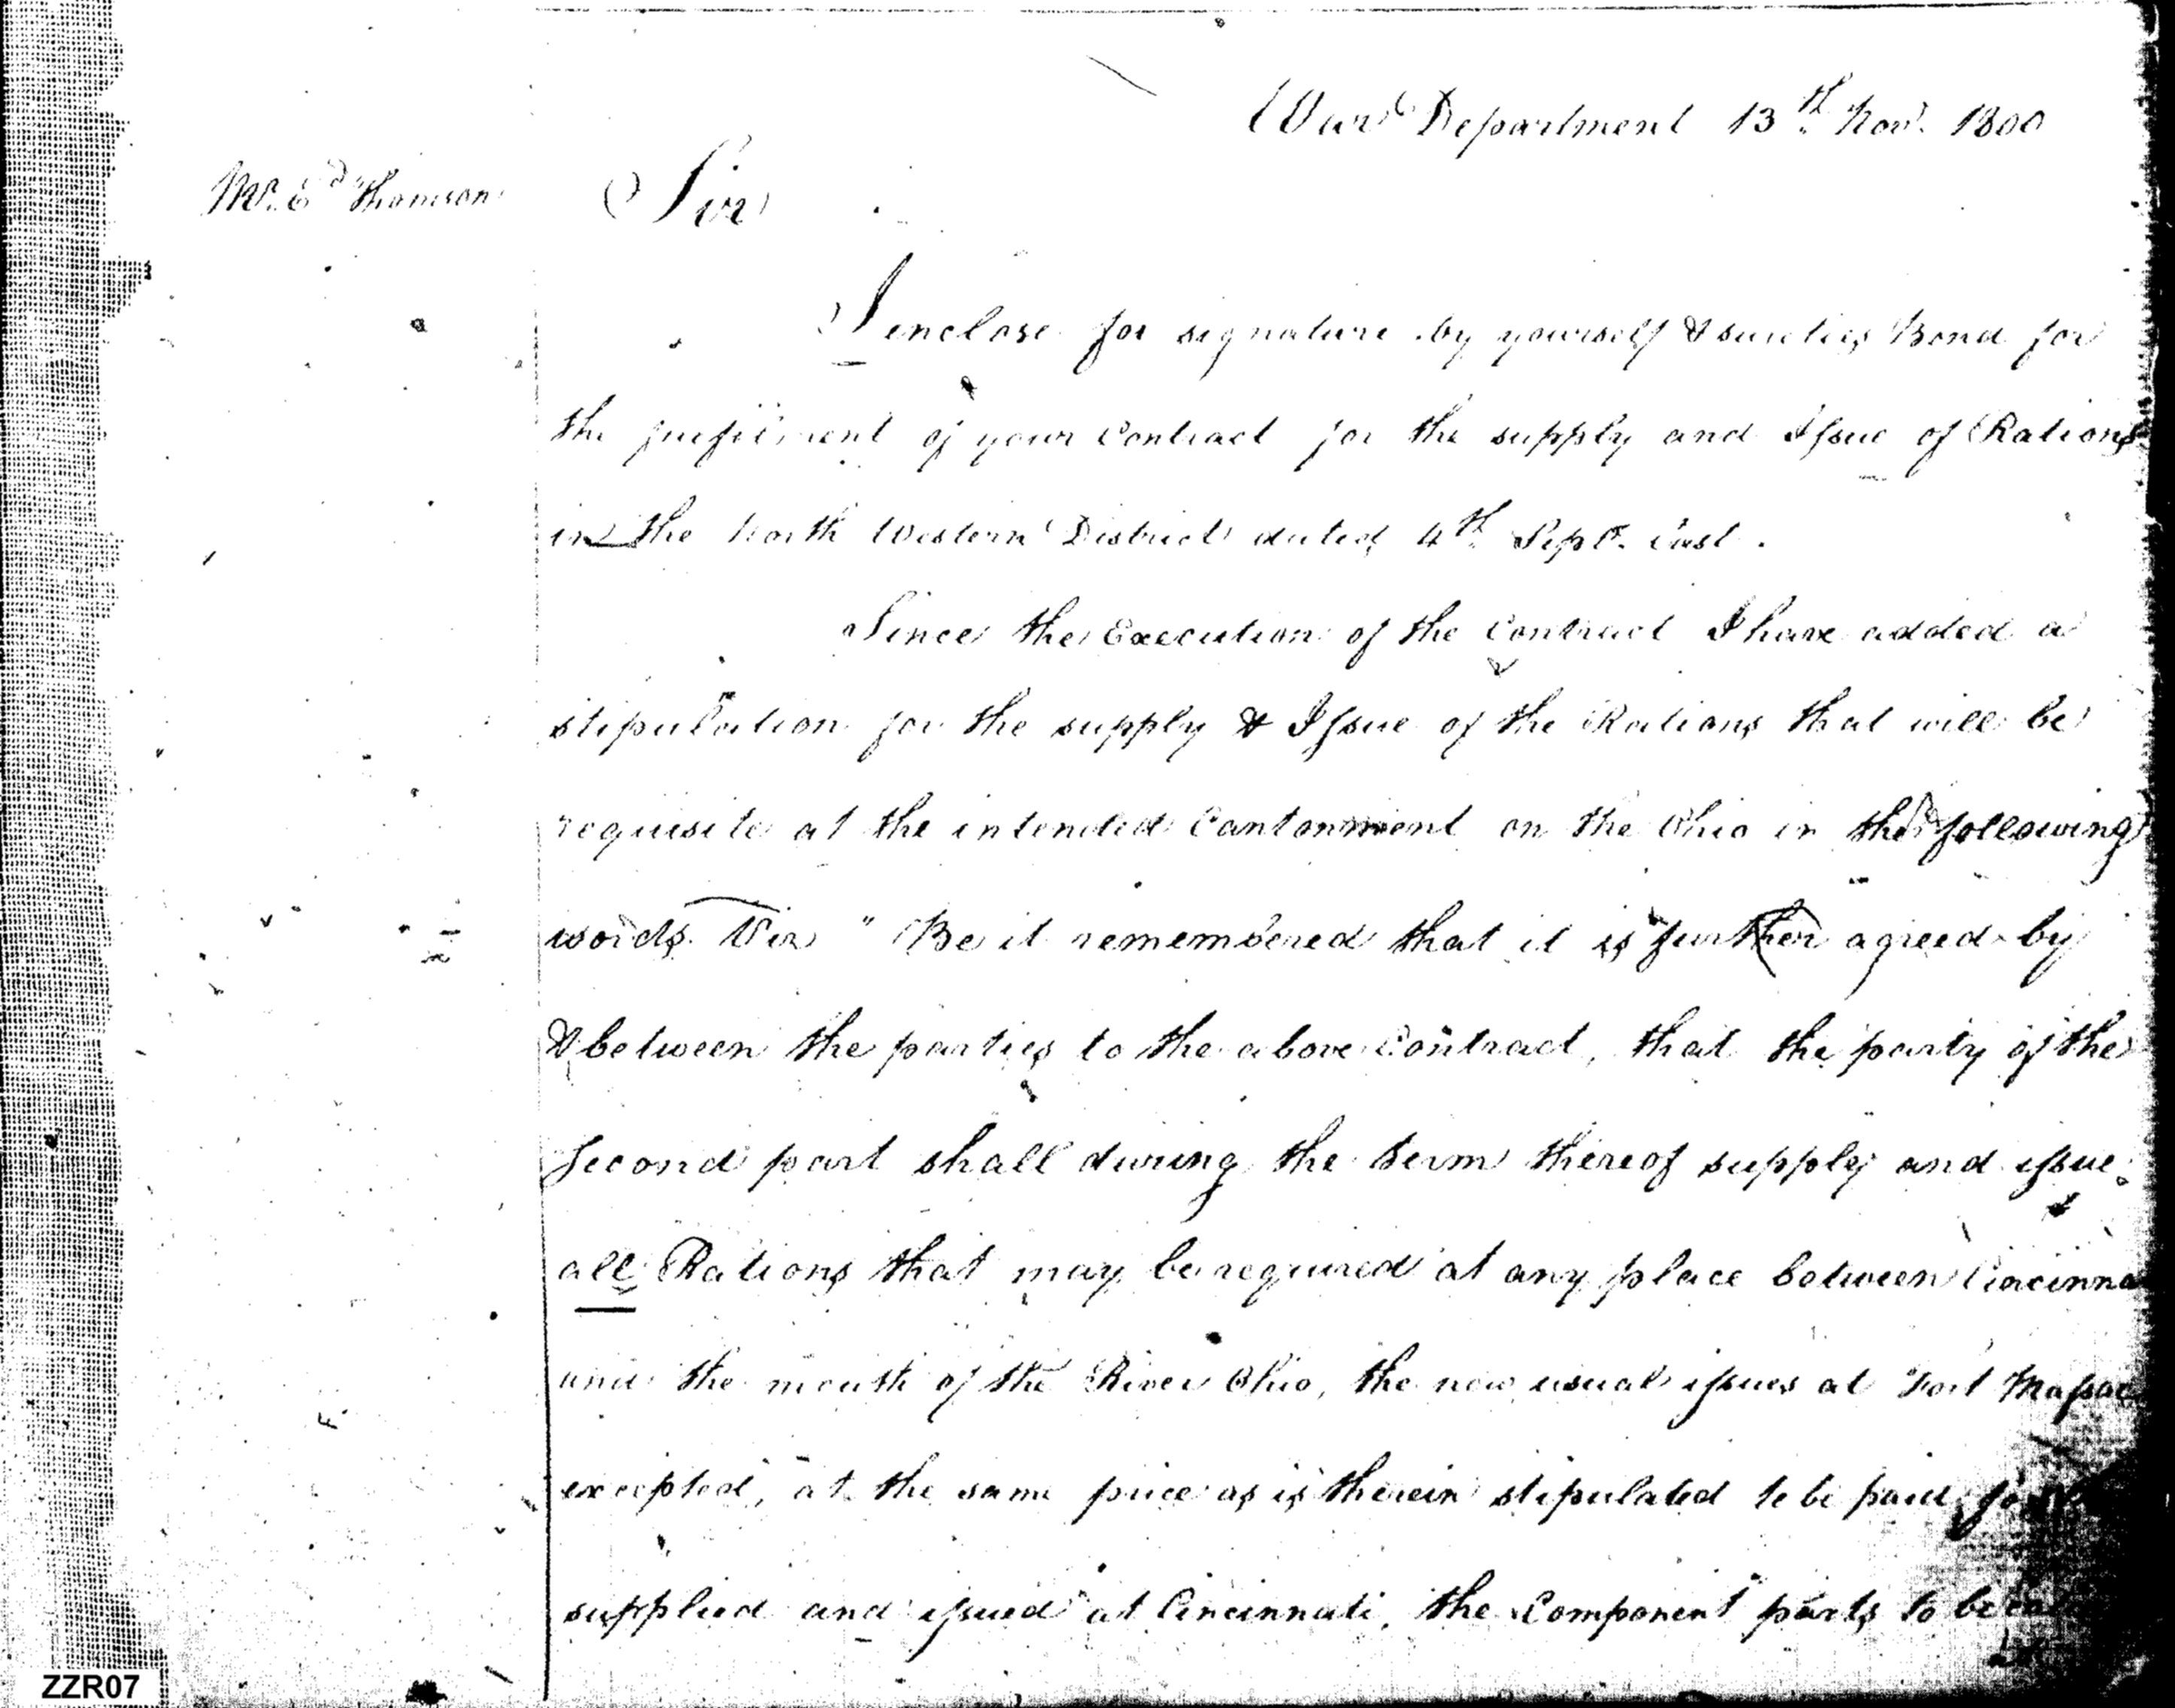 War Department 13th Novr. 1800
Mr. Ed Thomson
Sir
I enclose for signature by yourself & sureties Bond for
the fulfilment of your Contract for the supply and Issue of Rations
in the North Western District dated 4th Sept. last.
Since the Execution of the Contract I have added a
stipulation for the supply & Issue of the Rations that will be
requisite at the intended Cantonment on the Ohio in the following
words Viz "Be it remembered that it is further agreed by
& between the parties to the above Contract, that the party of the
Second part shall during the term thereof supply and issue
all Rations that may be required at any place between Cincinna
and the mouth of the River Ohio, the now usual issues at Fort Massac
excepted, at the same price as is therein stipulated to be paid for
supplied and issued at Cincinnati, the Component parts to be
ZZR07